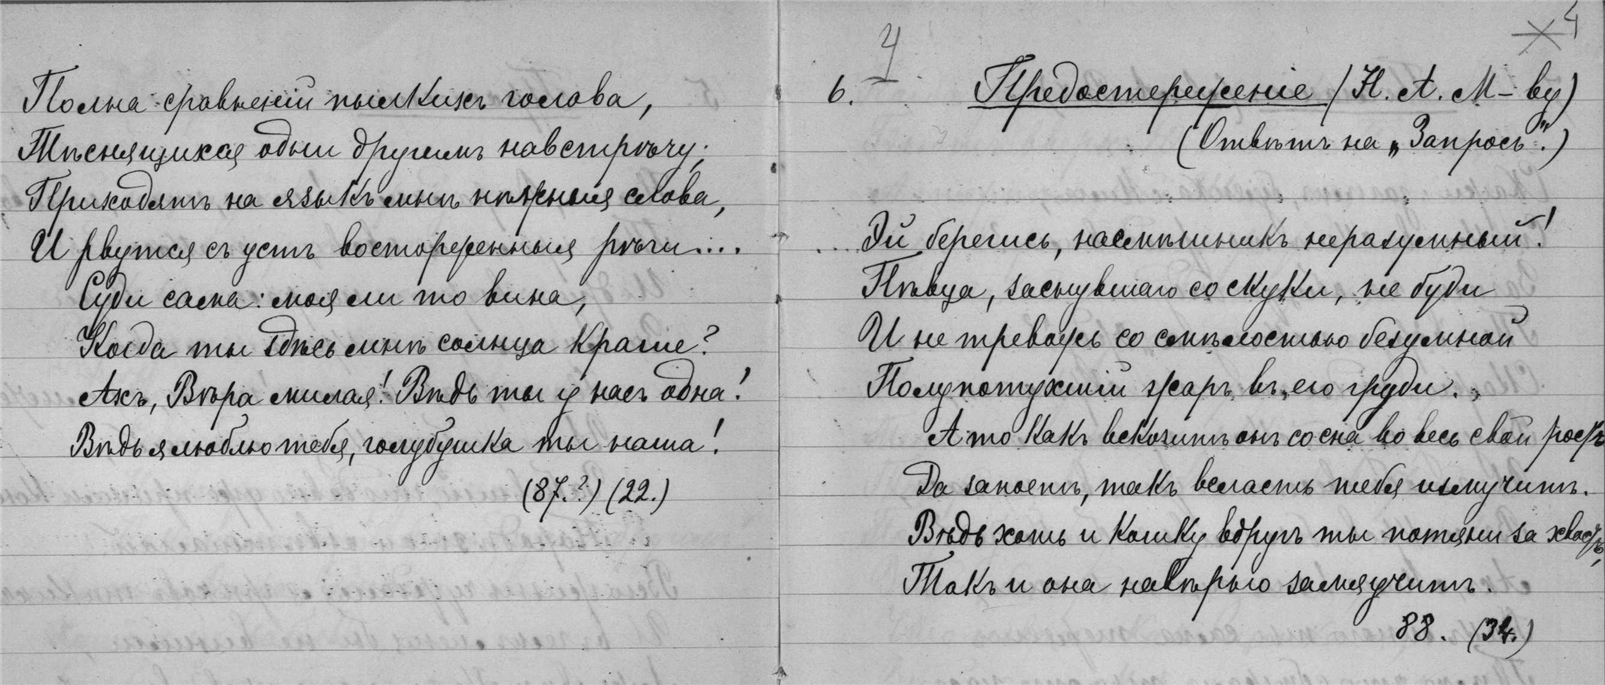 Полна сравненій пылкихъ голова,
Тѣснящихся одни другимъ навстрѣчу;
Приходятъ на языкъ мнѣ нѣжныя слова,
И рвутся съ устъ восторженныя рѣчи....
Суди сама: моя ли то вина,
Когда ты здѣсь мнѣ солнца краше?
Ахъ, Вѣра милая! Вѣдь ты у насъ одна!
Вѣдь я люблю тебя, голубушка ты наша!
(87.?) (22.)
4
4
6. Предостереженіе (Н. А. М–ву)
(Отвѣтъ на „Запросъ".)
... Эй берегись, насмѣшникъ неразумный!
Пѣвца, заснувшаго со скуки, не буди
И не тревожь со смѣлостью безумной
Полупотухшій жаръ въ его груди.
А то какъ вскочитъ онъ со сна во весь свой ростъ
Да запоетъ, такъ всласть тебя измучитъ.
Вѣдь хоть и кошку вдругъ ты потяни за хвостъ,
Такъ и она навѣрно замяучитъ.
88. (34.)